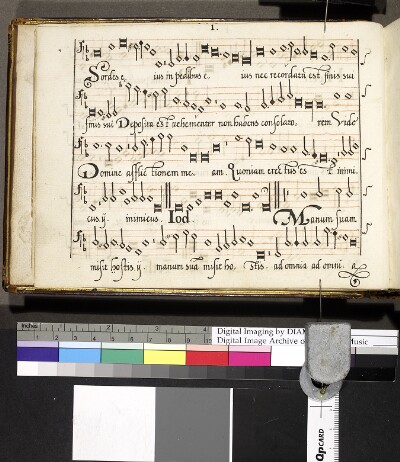 1.
Sordes e ius in pedibus e. ius nec recordata est finis sui
finis sui Deposita est vehementer non habens consolato. rem Vide
Domine afflic tionem me. am. Quoniam erec tus es t inimi.
cus. ij. inimicus. Iod. Manum suam
misit hostis. ij. manum suā misit ho. stis. ad omnia ad omni. a
inches
Digital Imaging by DIAM
Digital Image Archive o Music
QPCARD